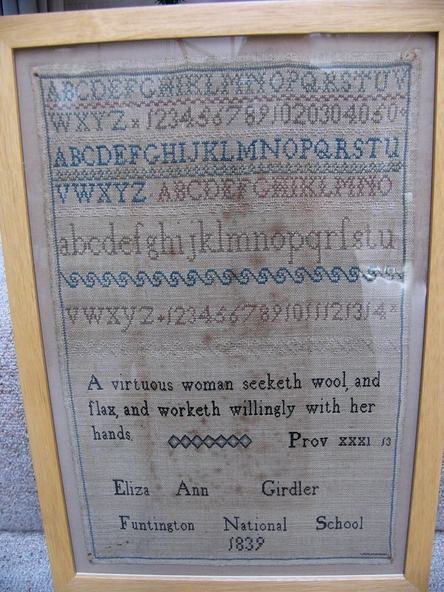 ABCDEFGHIKLMNOPQRSTUV
WXYZ 123456789102030405 0
ABCDEFGHIJKLMNOPQRSTU
VWXYZ ABCDEFGHIKLMNO
abcdefghijklmnopqrſstu
vwxyz 1234567891011121314
A virtuous woman seeketh wool, and
flax, and worketh willingly with her
hands. Prov XXXI 13
Eliza Ann Girdler
Funtington National School
1839